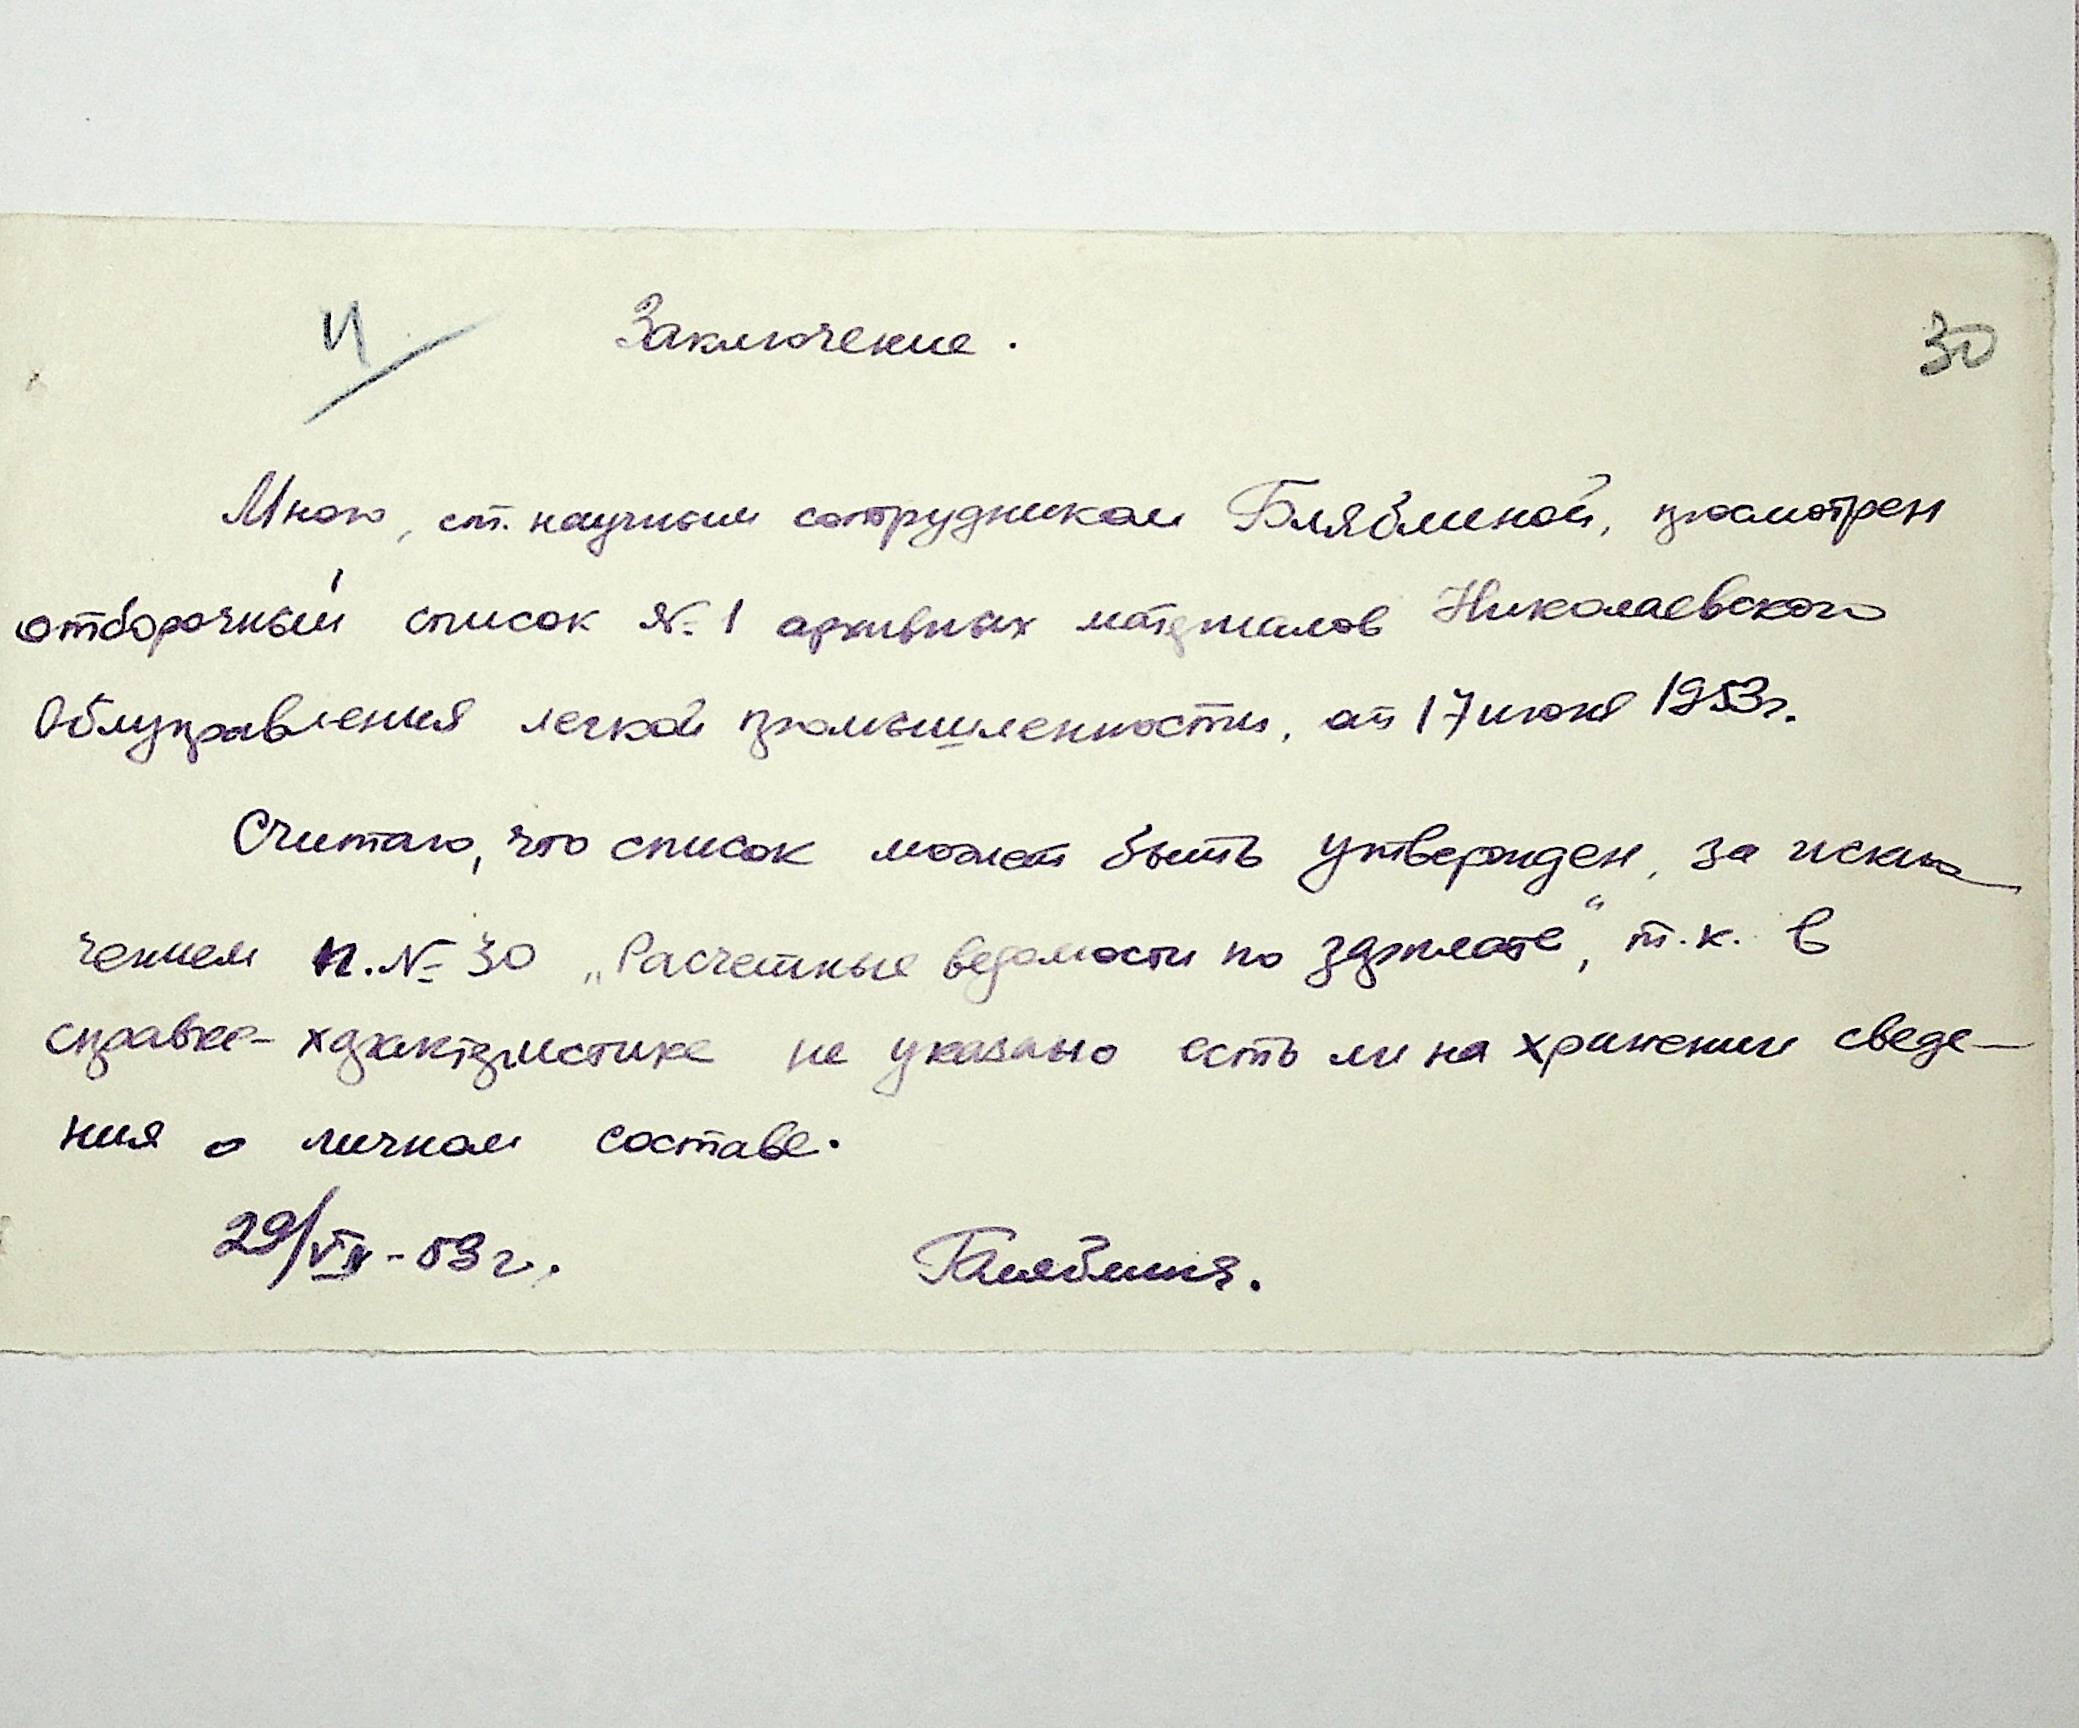 И
Заключение.
30
Мною, ст. научным сотрудником Бляблиной, просмотрен
отборочный список № 1 архивных материалов Николаевского
Облуправления легкой промышленности, от 17 июня 1953г.
Считаю, что список может быть утвержден, за исклю
чением п. № 30 „Расчетные ведомости по зарплате“, т.к. в
справке-характеристике не указано есть ли на хранении сведе-
ния о личном составе.
29/VII-53г.
Бляблина.